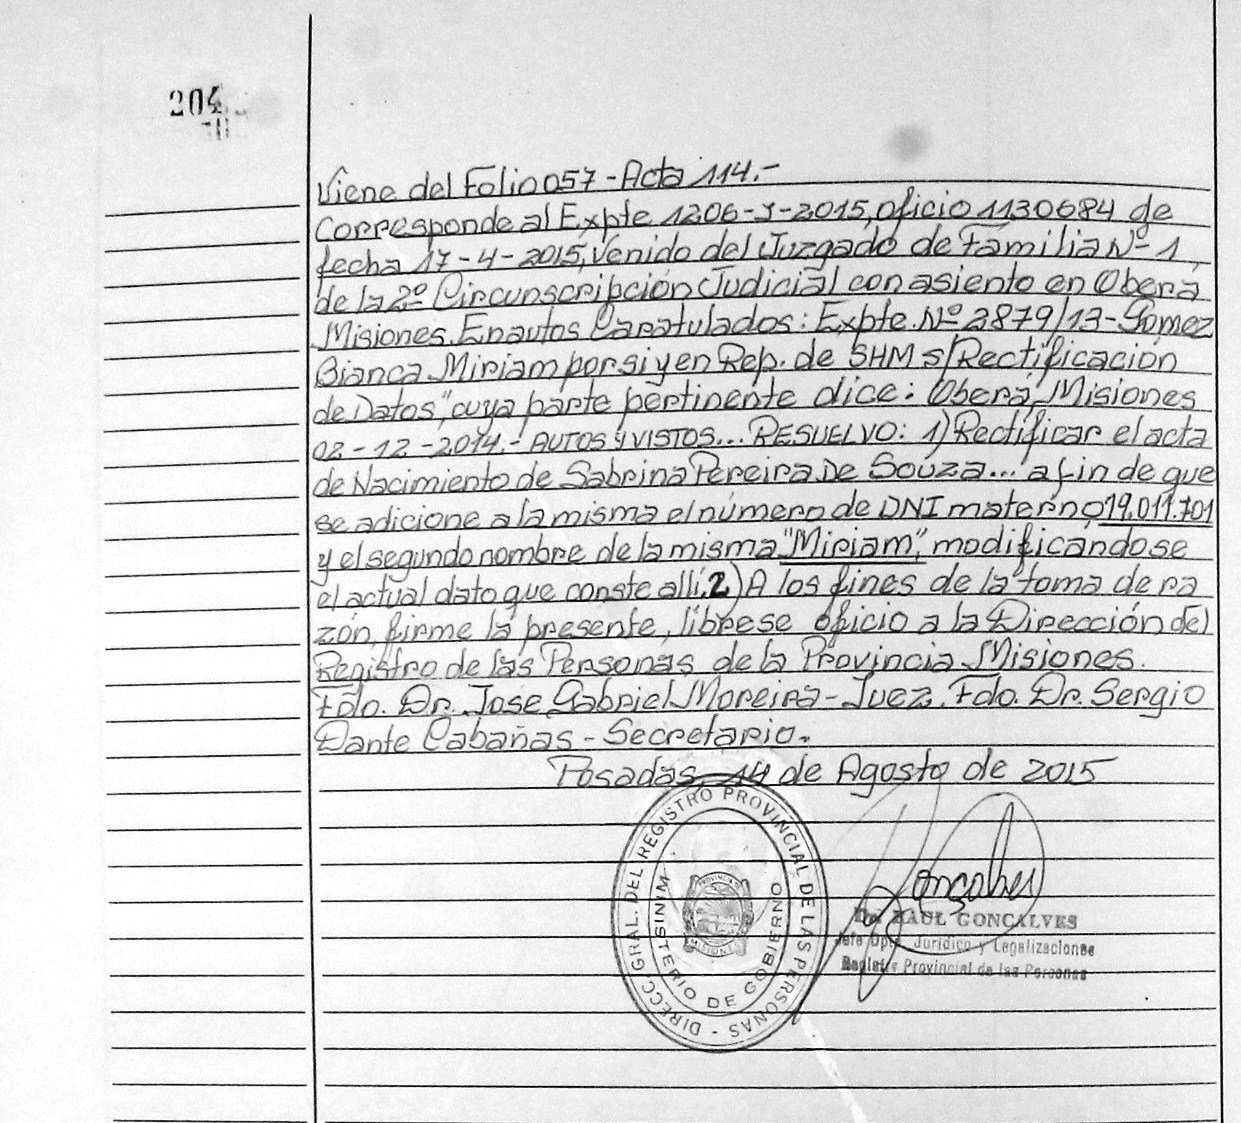 204
Viene del Folio 057 - Acta 114.-
Corresponde al Expte 1206-J-2015, oficio 1130684 de
fecha 17-4-2015, Venido del Juzgado de Familia Nº 1,
de la 2º Circunscripción Judicial con asiento en Oberá
Misiones. En autos Caratulados: Expte. Nº 3879/13 - Gomez
Bianca Miriam por si y en Rep. de SHM s/Rectificación
de Datos", cuya parte pertinente dice: Oberá, Misiones
02-12-2014.- AUTOS y VISTOS... RESUELVO: 1) Rectificar el acta
de Nacimiento de Sabrina Pereira De Souza... a fin de que
se adicione a la misma el número de DNI materno 19.011.701
y el segundo nombre de la misma "Miriam", modificandose
el actual dato que conste allí, 2) A los fines de la toma de ra
zón, firme la presente, líbrese oficio a la Dirección del
Registro de las Personas de la Provincia Misiones.
Fdo. Dr. Jose Gabriel Moreira - Juez. Fdo. Dr. Sergio
Dante Cabañas - Secretario.
Posadas, 14 de Agosto de 2015
DIRECC. GRAL. DEL REGISTRO PROVINCIAL DE LAS PERSONAS -
MINISTERIO DE GOBIERNO
PROVINCIA
MISIONES
Gonçalves
Dr. RAUL GONCALVES
Jefe Dpto. Jurídico y Legalizaciones
Registro Provincial de las Personas